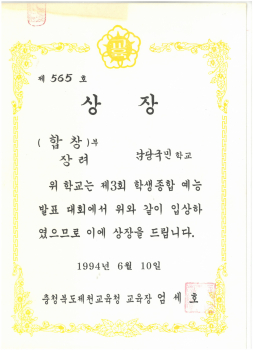 제 565 호
상 장
( 합 창 ) 부
장 려
국민 학교
위 학교는 제3회 학생종합 예능
발표 대회에서 위와 같이 입상하
였으므로 이에 상장을 드립니다.
1994년 6월 10일
충청북도제천교육청 교육장 엄 세 호